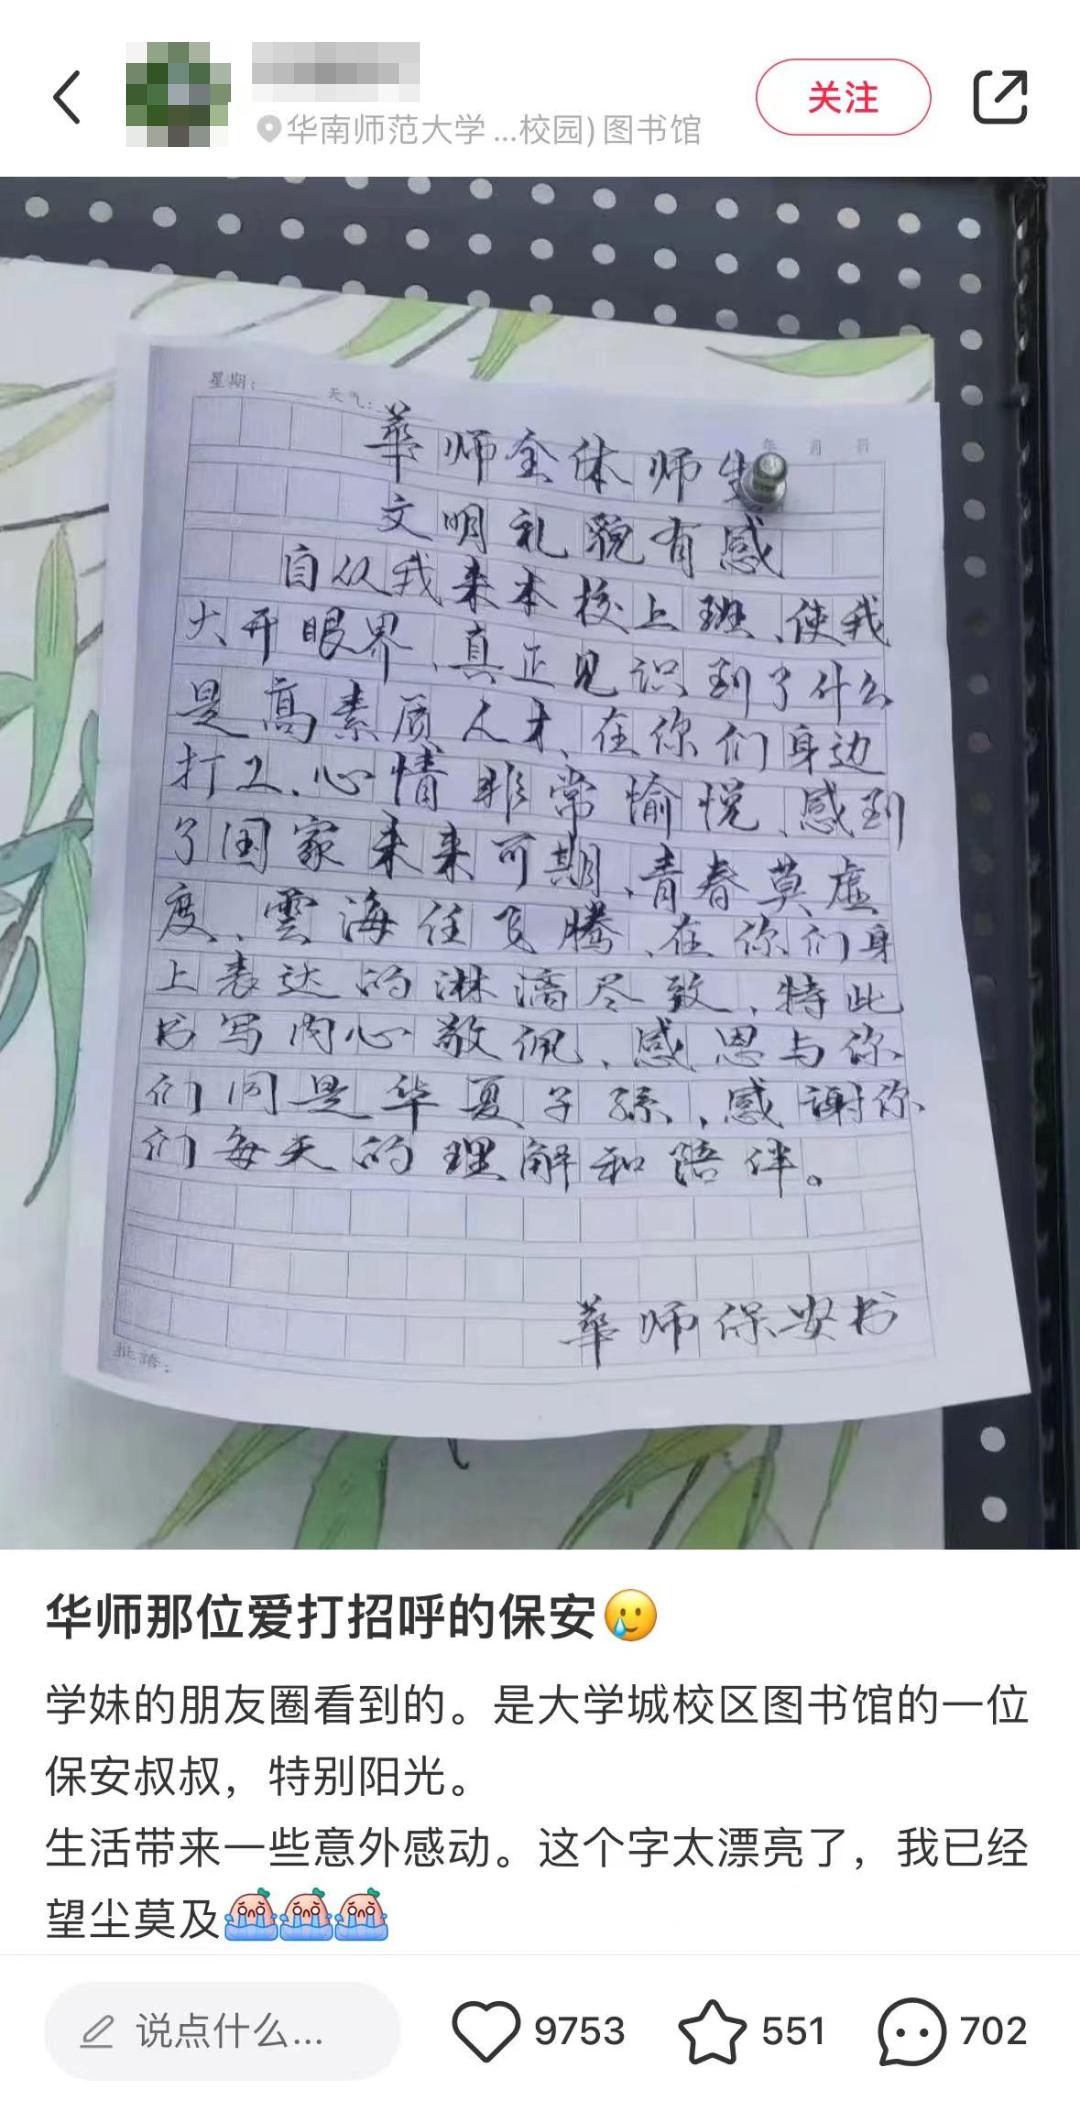 华南师范大学...校园)图书馆
关注
星期: 天气: 年 月 日
華师全体师生
文明礼貌有感
自从我来本校上班、使我
大开眼界、真正见识到了什么
是高素质人才、在你们身边
打工、心情非常愉悦、感到
了国家未来可期、青春莫虚
度、雲海任飞腾、在你们身
上表达的淋漓尽致、特此
书写内心敬佩、感恩与你
们同是华夏子孫、感谢你
们每天的理解和陪伴。
華师保安书
批語:
华师那位爱打招呼的保安🥲
学妹的朋友圈看到的。是大学城校区图书馆的一位
保安叔叔，特别阳光。
生活带来一些意外感动。这个字太漂亮了，我已经
望尘莫及
说点什么...
9753
551
702